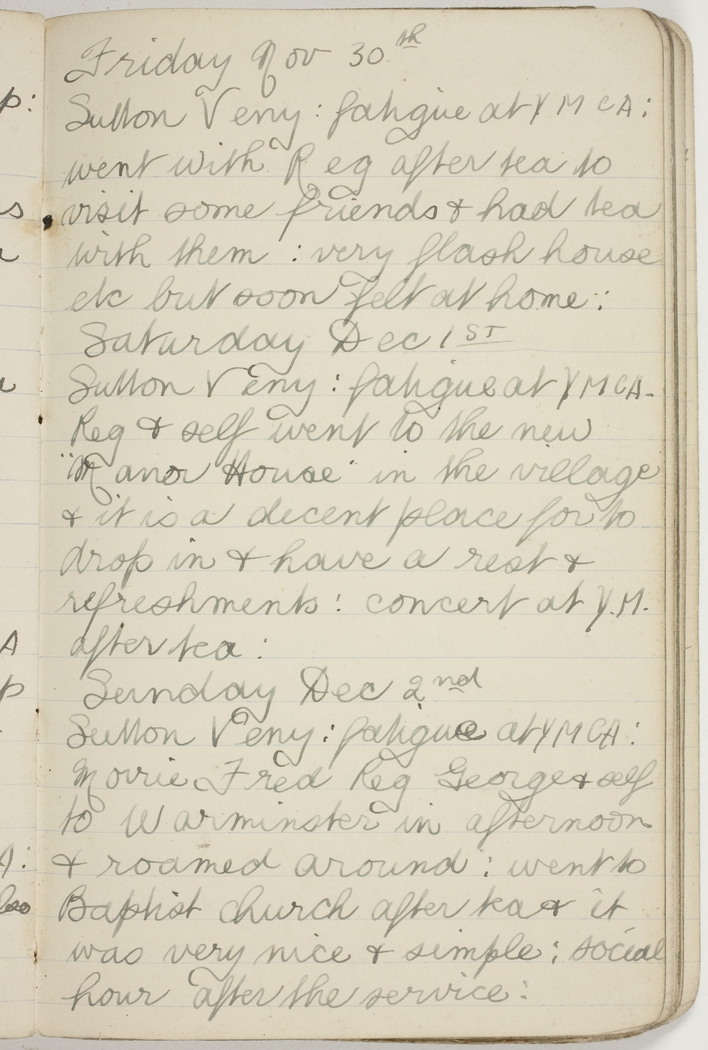 Friday Nov 30th
Sutton Veny: fatigue at Y M C A:
went with Reg after tea to
visit some friends & had tea
with them : very flash house
etc but soon felt at home:
Saturday Dec 1ST
Sutton Veny: fatigue at YMCA-
Reg & self went to the new
"Manor House" in the village
& it is a decent place for to
drop in & have a rest &
refreshments: concert at Y.M.
after tea:
Sunday Dec 2nd
Sutton Veny: fatigue at YMCA:
Morrie Fred Reg George & self
to Warminster in afternoon
& roamed around: went to
Baptist church after tea & it
was very nice & simple: social
hour after the service: